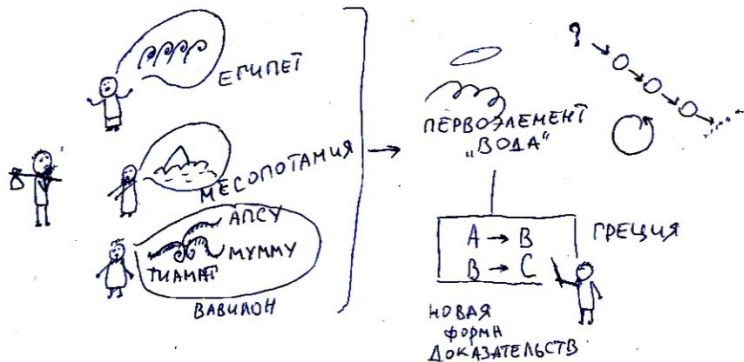 ЕГИПЕТ
МЕСОПОТАМИЯ
АПСУ
МУММУ
ТИАМАТ
ВАВИЛОН
ПЕРВОЭЛЕМЕНТ
„ВОДА“
?
A → B
B → C
ГРЕЦИЯ
НОВАЯ
ФОРМА
ДОКАЗАТЕЛЬСТВ